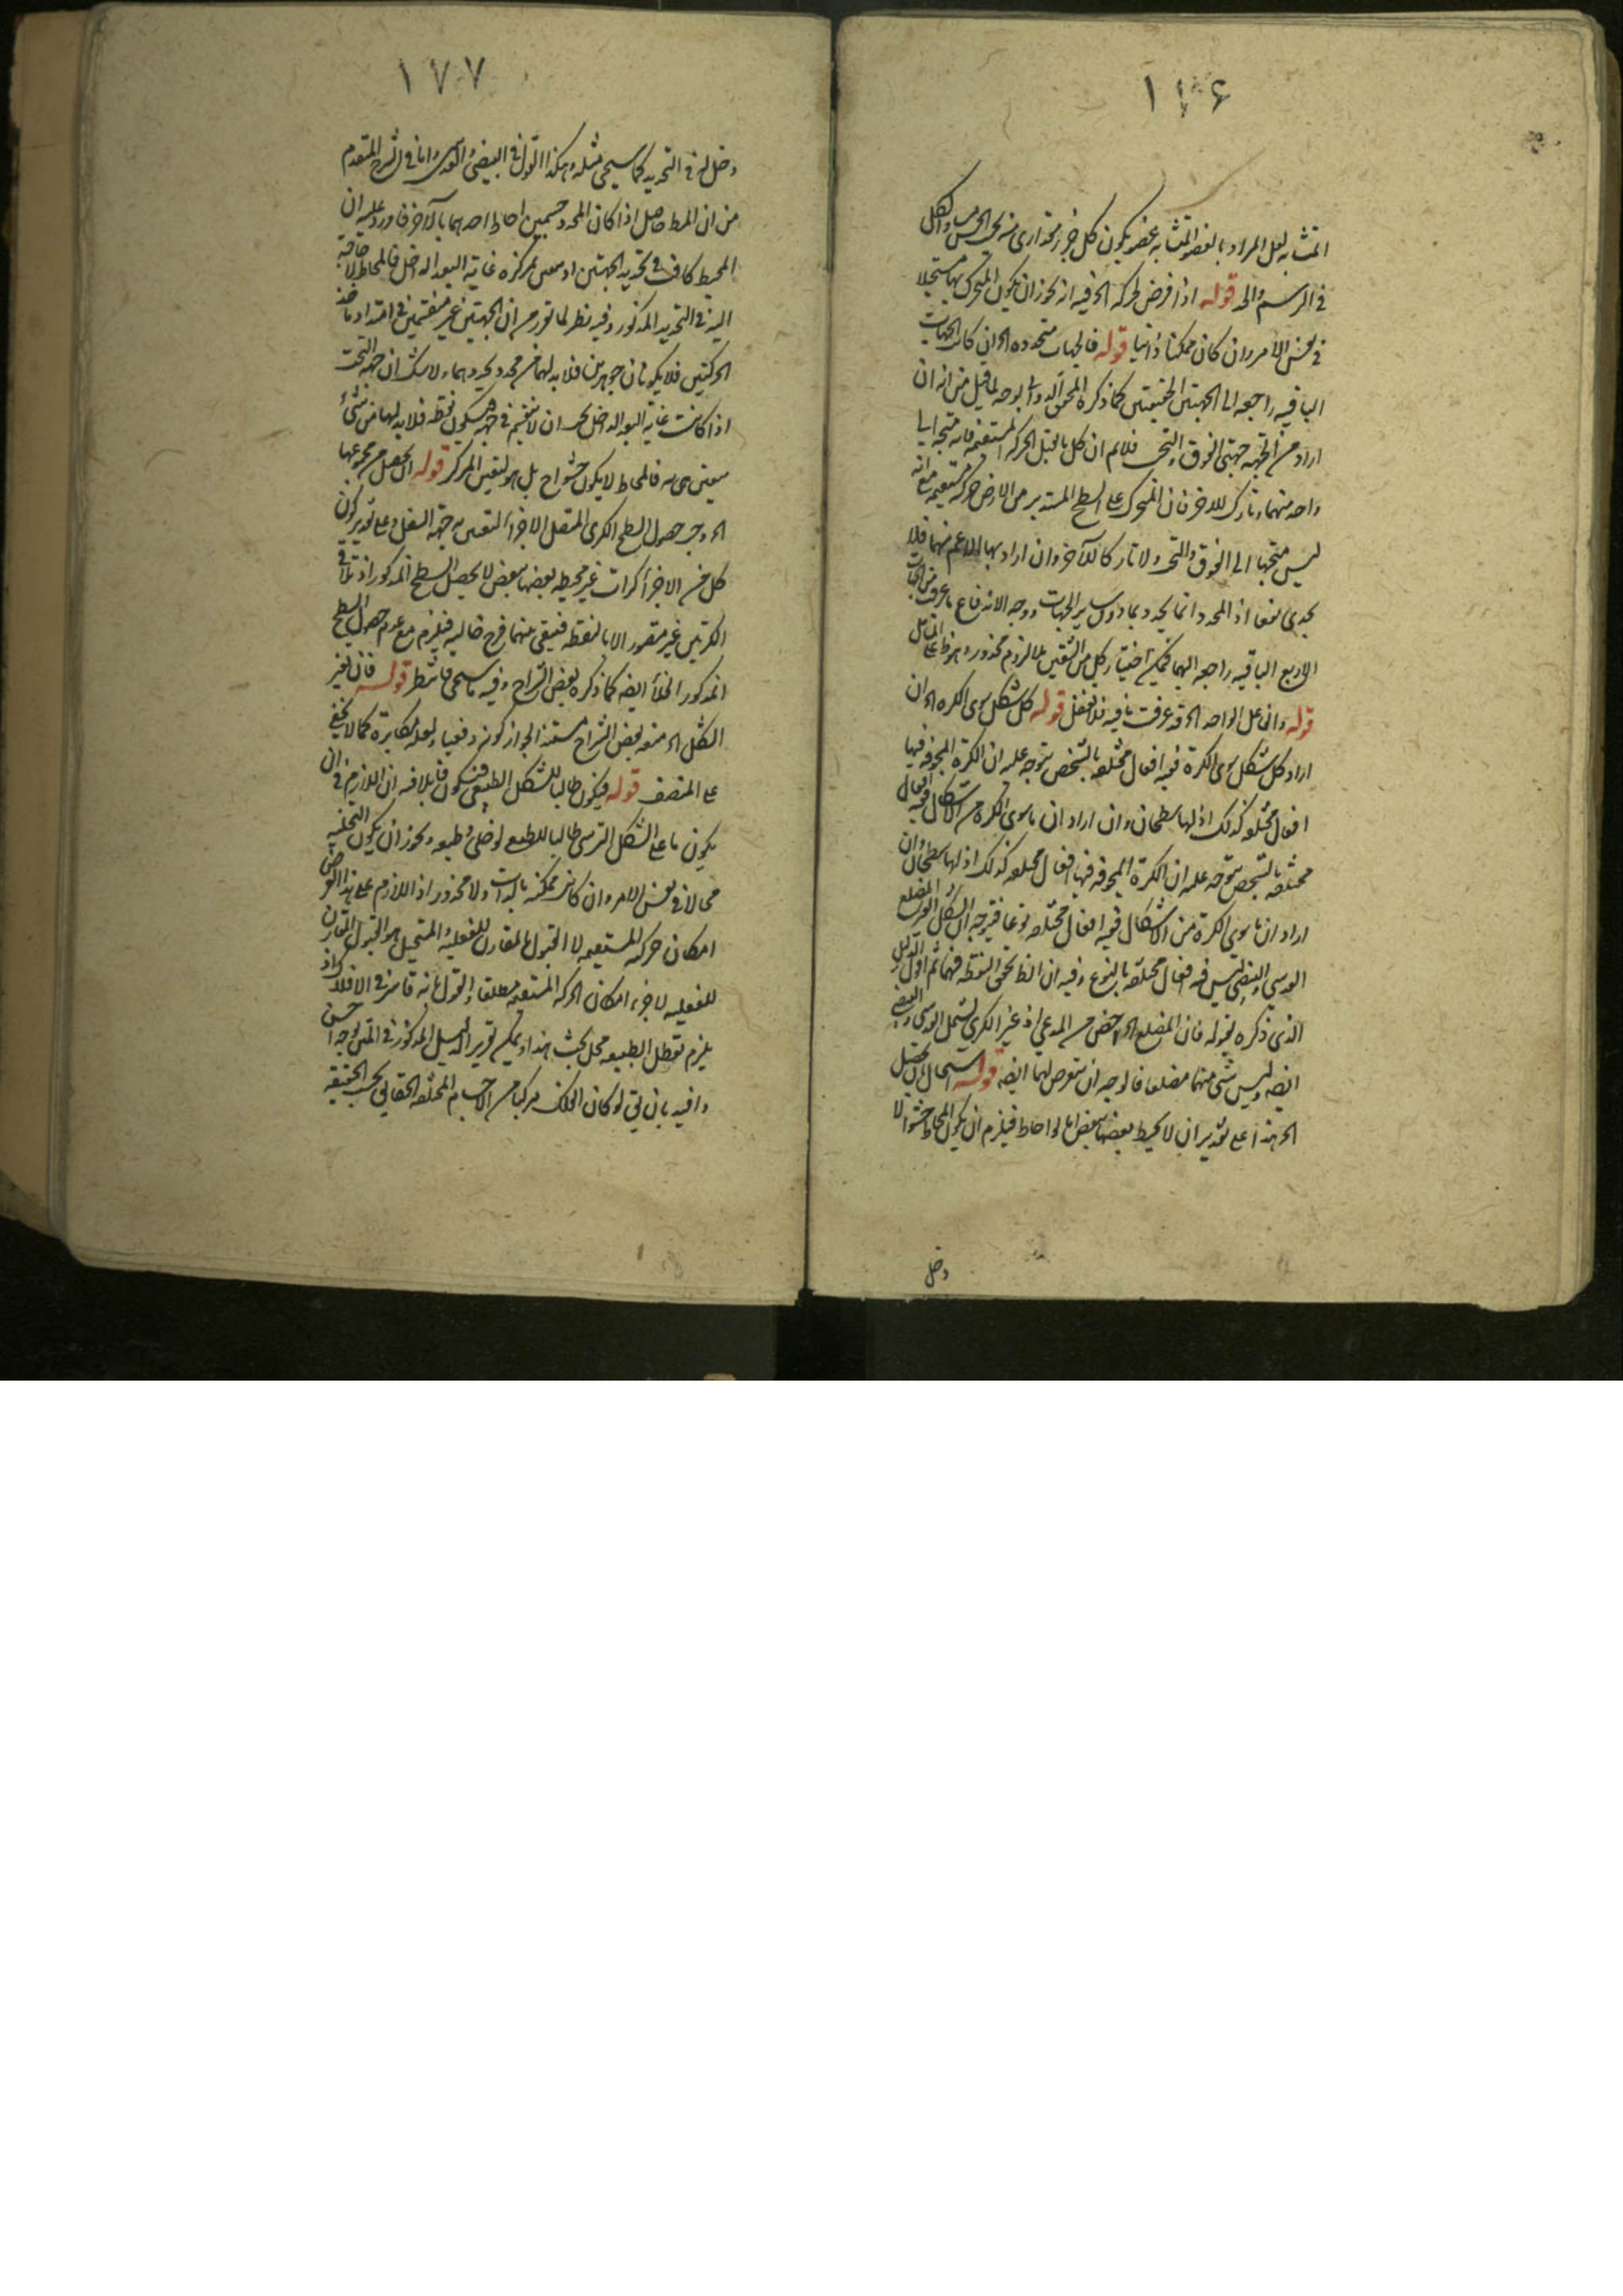 ١٧۶
المتشابه لعل المراد بالعضو المتشابه عضو يكون كل جزء مقداري منه بحسب الحس والكل
في الرسم والحد قوله اذا فرض لحركة الخ فيه انه يجوز ان يكون المتحرك بها مستحيلا
في نفس الامر وان كان ممكنا ذاتيا قوله فالجهات متحدده الخ ان كان الجهات
الباقيه راجعه الى الجهتين الحقيقتين كما ذكره المحقق الدواني لا يوجه ما قيل من انه ان
اراد من الجهه جهتي الفوق والتحت فلانم ان كل ما يقبل الحركة المستقيمه فانه متجه الى
واحد منهما وتارك للاخر فان المتحرك على السطح المستدير من الارض حركة مستقيمه مع انه
ليس متجها الى الفوق والتحت ولا تاركا للآخر وان اراد بها الاعم منهما فلا
يجدي نفعا اذ المحدد انما يحددهما دون ساير الجهات ووجه الاندفاع ما عرفت من ان الجهات
الاربع الباقيه راجعه اليهما فيمكن اختيار كل من الشقين بلا لزوم محذور وهو ظ على المتامل
قوله والفاعل الواحد الخ قد عرفت ما فيه فلا تغفل قوله كل شكل سوى الكره الخ ان
اراد كل شكل سوى الكرة ففيه افعال مختلفه بالشخص يتوجه عليه ان الكرة المجوفه فيها
افعال مختلفه كذلك اذ لها سطحان وان اراد ان ما سوى الكره من الاشكال ففيه افعال
مختلفه بالشخص يتوجه عليه ان الكرة المجوفه فيها افعال مختلفه كذلك اذ لها سطحان وان
اراد ان ما سوى الكرة من الاشكال ففيه افعال مختلفه نوعا فيتوجه ان الشكل
العدسي والبيضي ليس فيه افعال مختلفه بالنوع وفيه ان الخط نحو النقطه فيهما ثم اول الدليل
الذي ذكره بقوله فان المضلع الخ اخص من المدعى اذ غير الكري يشمل العدسي والبيضي
ايضه وليس شئ منهما مضلعا فالوجه ان يتعرض لهما ايضه قوله استحال ان يحصل
الخ هذا على تقدير ان لا يحيط بعضها ببعض اما لو احاط فيلزم ان يكون المحاط حشوا لا
دخل
١٧٧
دخل له في التحديد كما سيجي مثله وهكذا القول في البيضي والعدسي واما في الشرح المتقدم
من ان المط حاصل اذا كان المحدد جسمين احاط احدهما بالآخر فاورد عليه ان
المحيط كاف في تحديد الجهتين اذ يتعين بمركزه غاية البعد الداخل فالمحاط لا حاجة
اليه في التحديد المذكور وفيه نظر لما تقرر من ان الجهتين غير منقسمين في امتداد ماخذ
الحركتين فلا يكونان جوهرين فلا بد لهما من محدد يحددهما ولا شك ان جهة التحت
اذا كانت غاية البعد الداخل يجب ان لا تنقسم في جهة فيكون نقطه فلا بد لها من شئ
يتعين هي به فالمحاط لا يكون حشوا ح بل هو لتعين المركز قوله ان يحصل من مجموعها
الخ وجه حصول السطح الكري المتصل الاجزاء لتعين به جهة السفل وعلى تقدير كون
كل من الاجزاء كرات غير محيطه بعضها ببعض لا يحصل السطح المذكور اذ تلاقي
الكرتين غير متصور الا بالنقطه فيبقى بينهما فرج خاليه فيلزم مع عدم حصول السطح
المذكور الخلأ ايضه كما ذكره بعض الشراح وفيه ما سيجي فانتظر قوله فان تغير
الشكل الخ منعه بعض الشراح مستندا بجواز كونه دفعيا ولعله مكابرة كما لا يخفى
على المنصف قوله فيكون طالبا للشكل الطبيعي فيكون قابلا فيه ان اللازم في ان
يكون ما على الشكل القسري طالبا للطبيعي لو خلي وطبعه ويجوز ان يكون التخليه
محالا في نفس الامر وان كانت ممكنة بالذات ولا محذور اذ اللازم على هذا الفرض
امكان حركة المستقيمه لا القبول المقارن للفعليه والمستحيل هو القبول المقارن
للفعليه لا جزء امكان الحركه المستقيمه مطلقا والقول بانه قاسر في الافلاك اذ
يلزم تعطل الطبيعه محل بحث هذا ويمكن تقرير الدليل المذكور في المتن بوجه احسن
وافيد بان يق لو كان الفلك مركبا من الاجسام المختلفه الحقايق بحسب الحقيقه